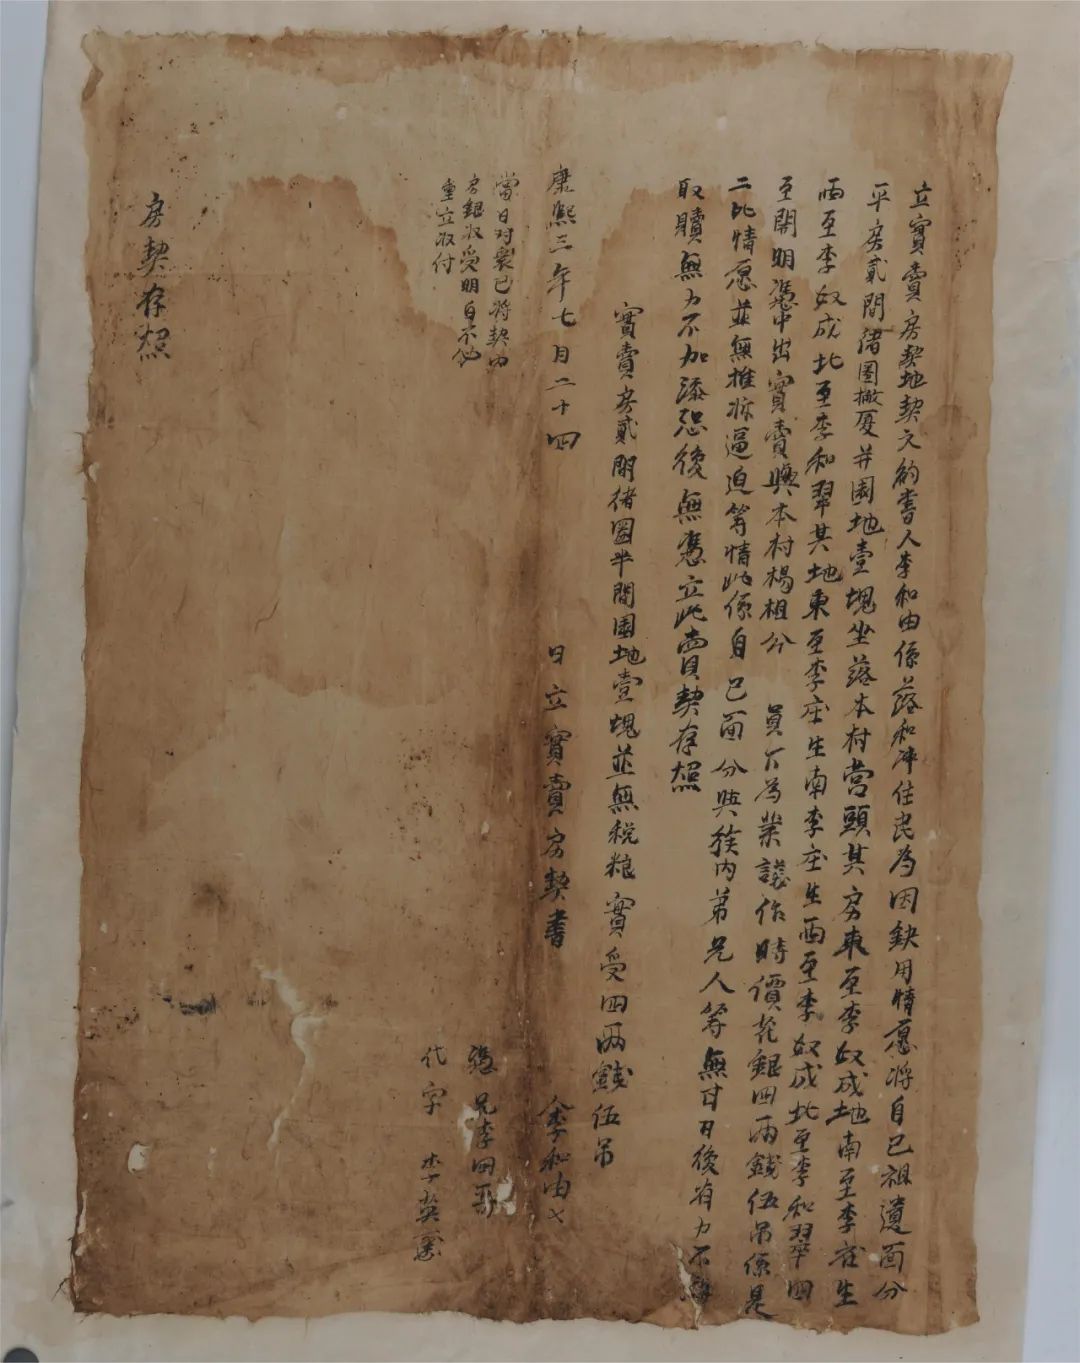 立實賣房契地契文約書人李和由係落和冲住民為因缺用情愿将自己祖遺面分
平房貳間猪圈撇厦并園地壹塊坐落本村营頭其房東至李奴成地南至李在生
西至李奴成北至李和翠其地東至李在生南李在生西至李奴成北至李和翠四
至開明憑中出實賣與本村楊祖分 員下為業議作時價花銀四两錢伍吊係是
二比情愿並無推󠄀逼迫等情此係自己面分與族内弟兄人等無干日後有力不
取贖無力不加添恐後無憑立此賣契存照
實賣房貳間猪圈半間園地壹塊並無税粮實受四两錢伍吊
康熙三年七月二十四 日立實賣房契書 李和由
當日对衆已将契内
房銀收受明白不必
重立收付
憑兄李四
代字 李英
房契存照